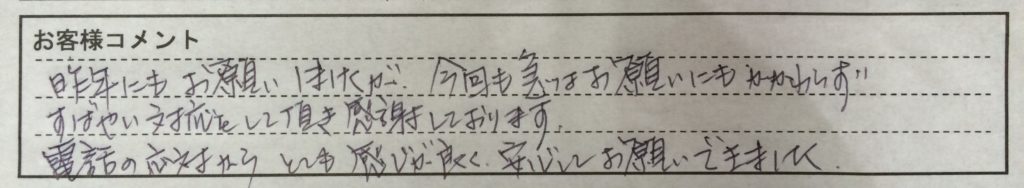 お客様コメント
昨年にもお願いしましたが、今回も急なお願いにもかかわらず
すばやい対応をして頂き感謝しております。
電話の応対からとても感じが良く、安心してお願いできました。